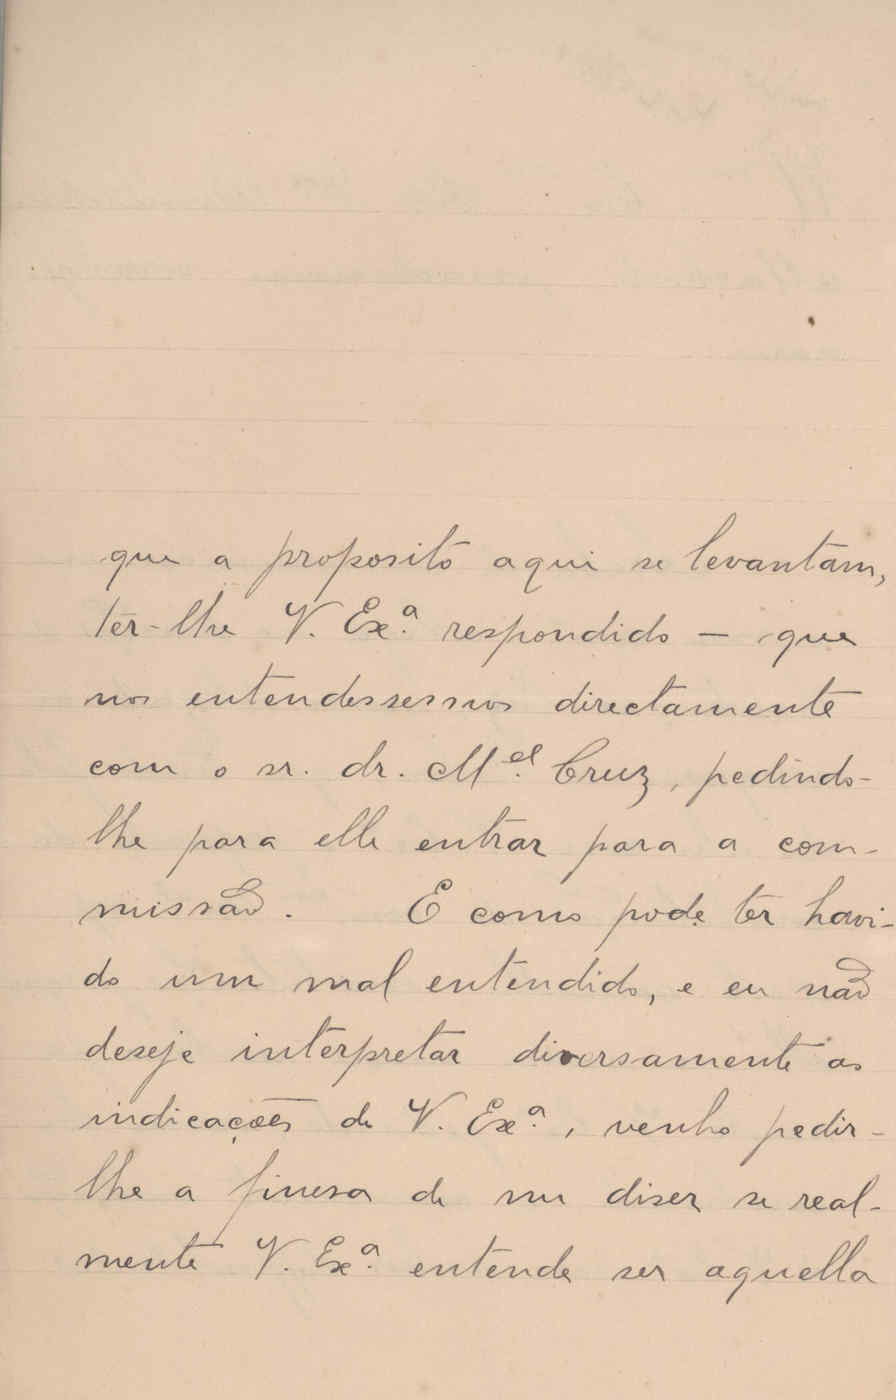 que a proposito aqui se levantam,
ter-lhe V. Ex.ª respondido — que
nos entendessemos directamente
com o sr. dr. M.el Cruz, pedindo-
lhe para elle entrar para a com-
missão. E como pode ter havi-
do um mal entendido, e eu não
deseje interpretar diversamente as
indicações de V. Ex.ª, venho pedir-
lhe a finesa de me diser se real-
mente V. Ex.ª entende ser aquella